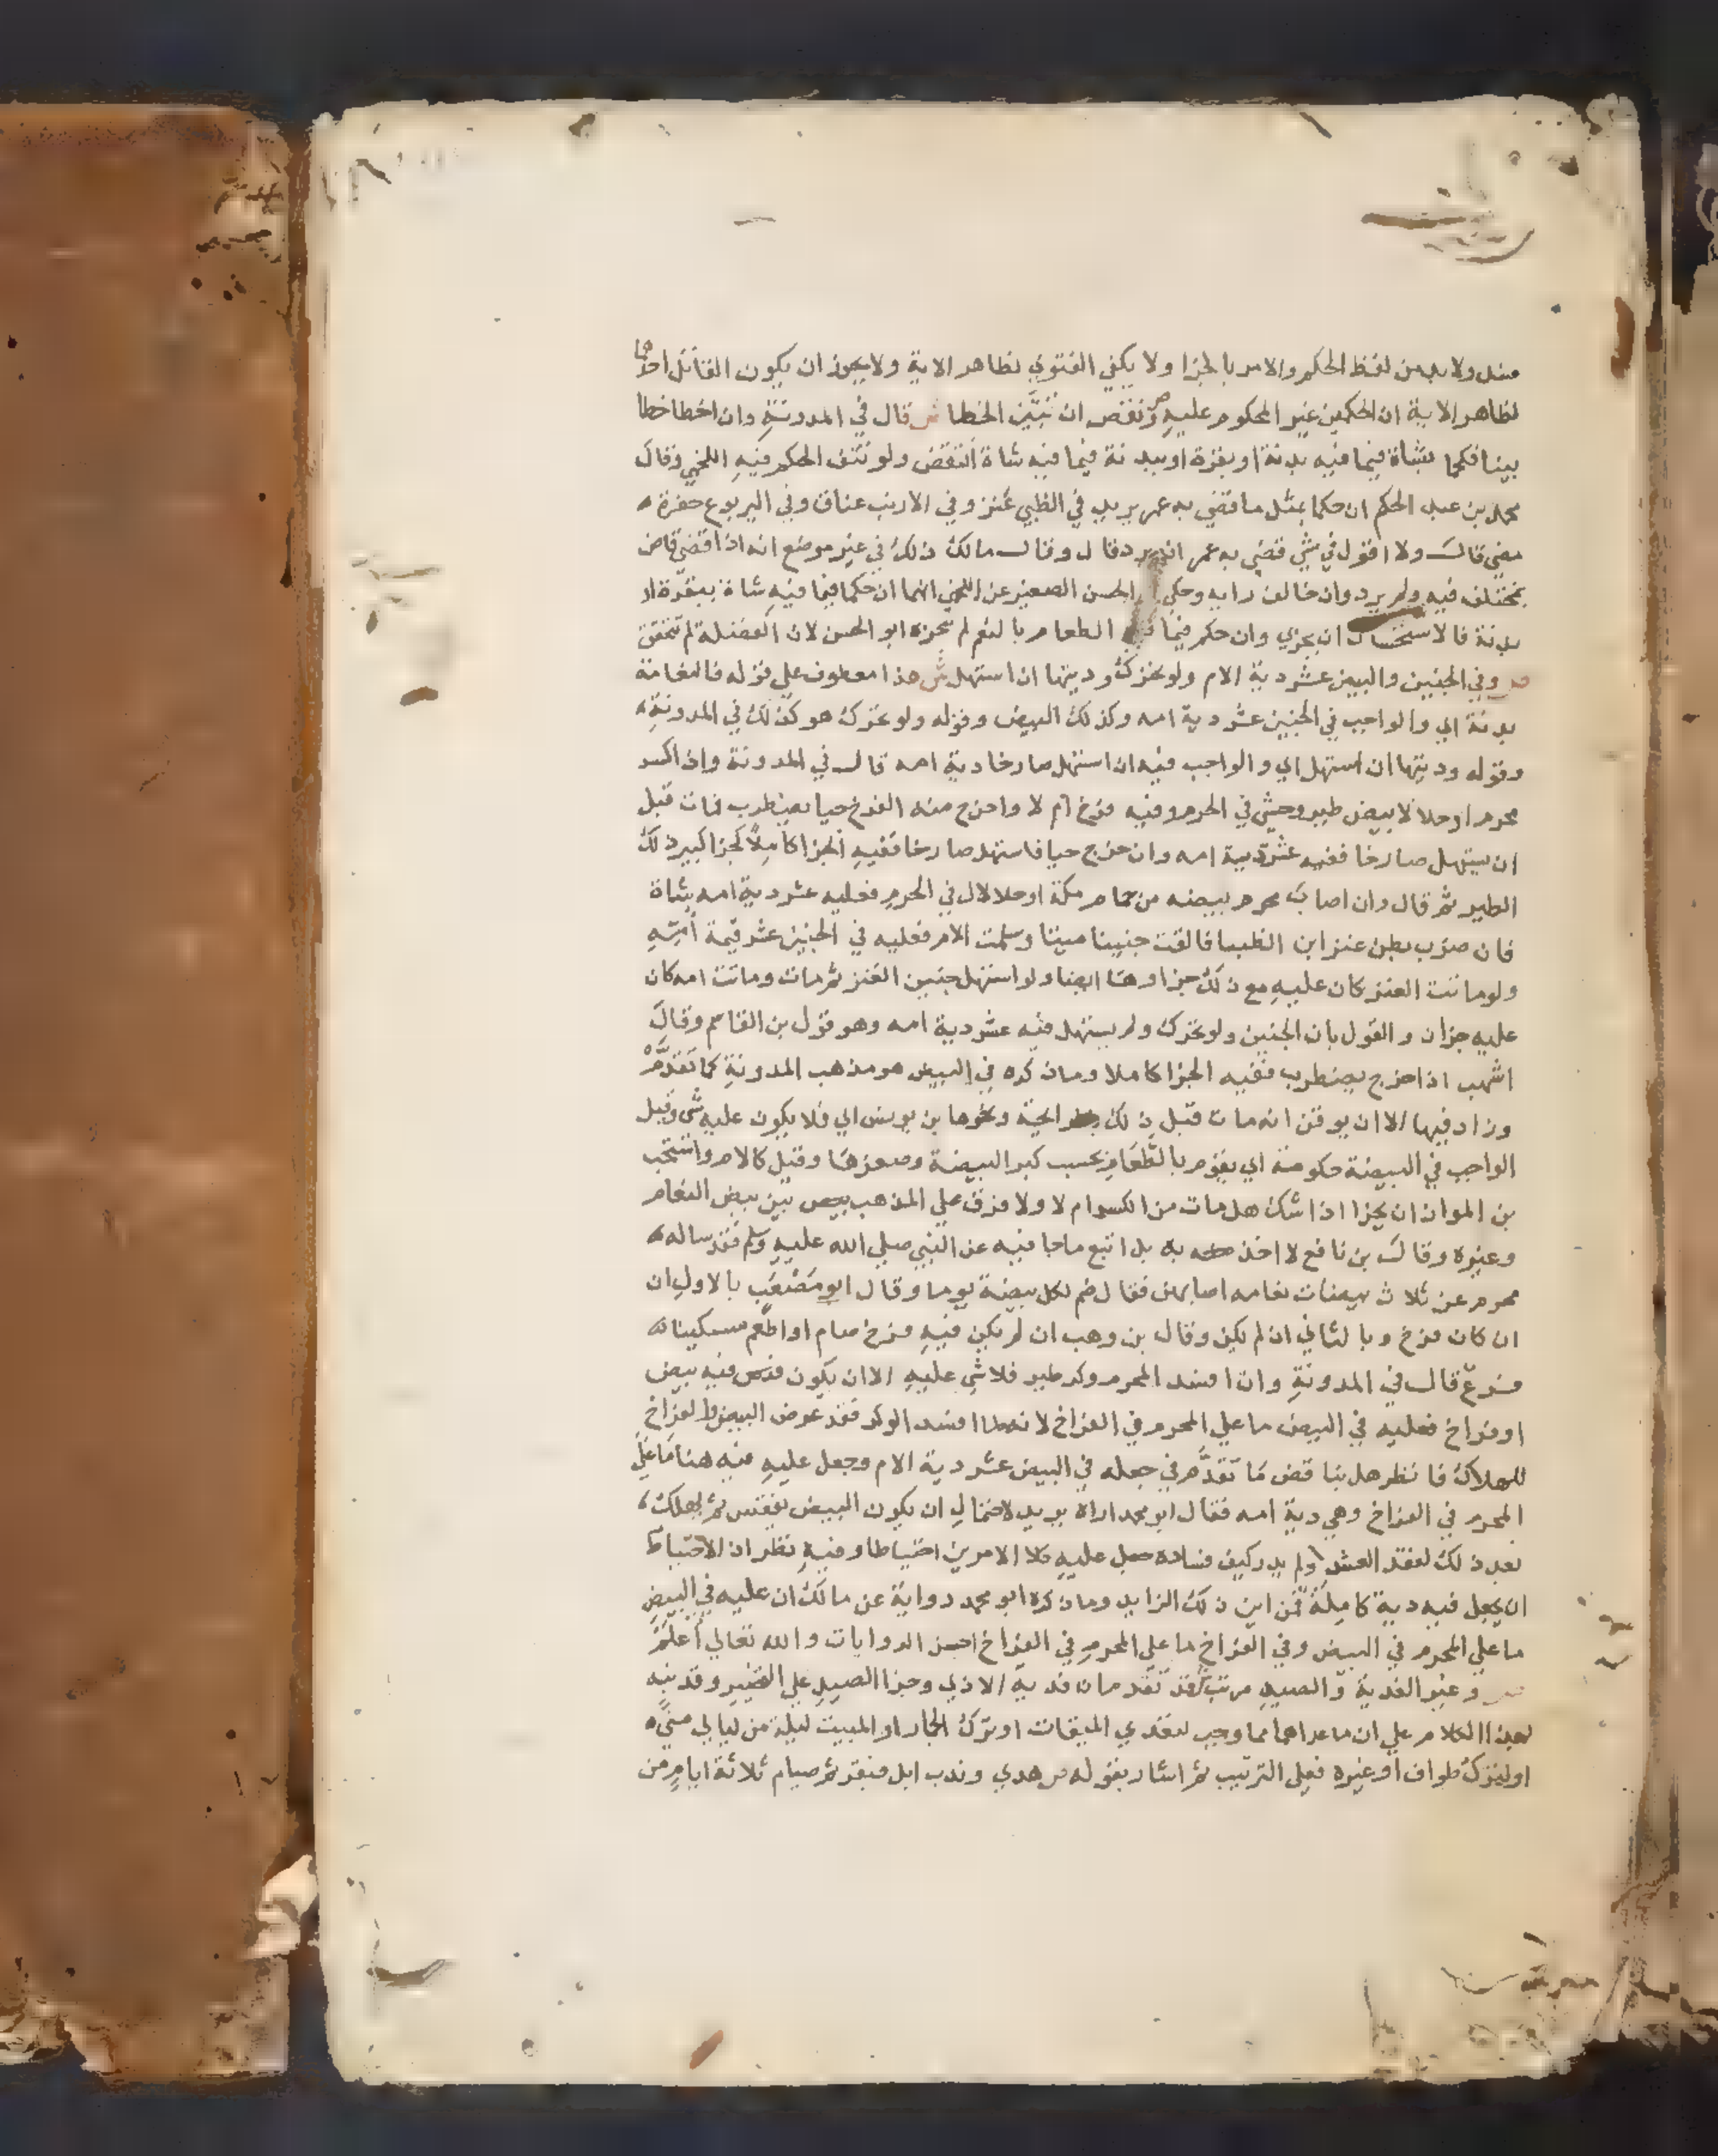 منه ولابد من لفظ الحكم والامر بالجزا ولا يكفي الفتوي لظاهر الاية ولا يجوز ان يكون القاتل احدهما
لظاهر الاية ان الحكمين غير المحكوم عليه ص ونقض ان تبين الخطا ش قال في المدونة وان اخطا خطا
بينا فحكما بشاة فيما فيه بدنة او بقرة او ببدنة فيما فيه شاة انتقض ولو نتف الحكم فيه اللخمي وقال
محمد بن عبد الحكم ان حكما بمثل ما قضي به عمر يريد في الظبي عنز وفي الارنب عناق وفي اليربوع جفرة
مضي قال ولا اقول في شي قضي به عمر انه يرد قال وقال مالك ذلك في غير موضع انه اذا قضي قاض
بمختلف فيه ولم يرد وان خالف رايه وحكي الحسن الصغير عن اللخمي انهما ان حكما فيما فيه شاة ببقرة او
بدنة فالاستحسان ان يجزي وان حكم فيما فيه الطعام بالنعم لم يجزه ابو الحسن لان الفضلة لم تتحقق
ص وفي الجنين والبيض عشر دية الام ولو تحرك وديتها ان استهل ش هذا معطوف علي قوله فالنعامة
بدنة اي والواجب في الجنين عشر دية امه وكذلك البيض وقوله ولو تحرك هو كذلك في المدونة
وقوله وديتها ان استهل اي والواجب فيه ان استهل صارخا دية امه قال في المدونة واذا كسر
محرم او حلالا بيض طير وحشي في الحرم وفيه فرخ ام لا واخرج منه الفرخ حيا يضطرب فمات قبل
ان يستهل صارخا ففيه عشر دية امه وان خرج حيا فاستهل صارخا ففيه الجزا كاملا كجزا كبير ذلك
الطير ثم قال وان اصاب محرم بيضه من حمام مكة او حلالال في الحرم فعليه عشر دية امه بشاة
فان ضرب بطن عنز ابن الظبا فالقت جنينا ميتا وسلمت الام فعليه في الجنين عشر قيمة امه
ولو ماتت العنز كان عليه مع ذلك جزاوها ايضا ولو استهل جنين العنز ثم مات وماتت امه كان
عليه جزان والقول بان الجنين ولو تحرك ولم يستهل فيه عشر دية امه وهو قول بن القاسم وقال
اشهب اذا خرج يضطرب ففيه الجزا كاملا وما ذكره في البيض هو مذهب المدونة كما تقدم
وزاد فيها الا ان يوقن انه مات قبل ذلك الحية ونحوها بن يونس اي فلا يكون عليه شي وقيل
الواجب في البيضة حكومة اي يقوم بالطعام بحسب كبر البيضة وصغرها وقيل كالام واستحب
بن المواز ان يجزا اذا شك هل مات من الكسر ام لا ولا فرق علي المذهب بين بيض النعام
وغيره وقال بن نافع لا اخذ به بل اتبع ما جا فيه عن النبي صلي الله عليه وسلم فقد ساله
محرم عن ثلاث بيضات نعامه اصابهن فقال صم لكل بيضة يوما وقال ابو مصعب بالاول ان
ان كان فرخ وبالثاني ان لم يكن وقال بن وهب ان لم يكن فيه فرخ صام او اطعم مسكينا
فرع قال في المدونة وان افسد المحرم وكر طير فلا شي عليه الا ان يكون فيه بيض
او فراخ فعليه في البيض ما علي المحرم في الفراخ لانه لما افسد الوكر فقد عرض البيض والفراخ
للهلاك فانظر هل يناقض ما تقدم في جعله في البيض عشر دية الام وجعل عليه فيه هنا ما علي
المحرم في الفراخ وهي دية امه فقال ابو محمد اراه يريد لاحتمال ان يكون البيض يفقس ثم يهلك
بعد ذلك لفقد العش ولم يدر كيف فساده حمل عليه كلا الامرين احتياطا وفيه نظر اذ الاحتياط
ان يجعل فيه دية كاملة فمن اين ذلك الزايد وما ذكره ابو محمد رواية عن مالك ان عليه في البيض
ما علي المحرم في البيض وفي الفراخ ما علي المحرم في الفراخ احسن الروايات والله تعالي اعلم
ص وغير الفدية والصيد مرتب قد تقدم ان فدية الاذي وجزا الصيد علي التخيير وقد نبه
بهذا الكلام علي ان ما عداهما مما وجب لتعدي الميقات او ترك الجمار او المبيت ليلة من ليالي مني
او لترك طواف او غيره فعلي الترتيب ثم اشار بقوله ص هدي وندب ابل فبقر ثم صيام ثلاثة ايام من